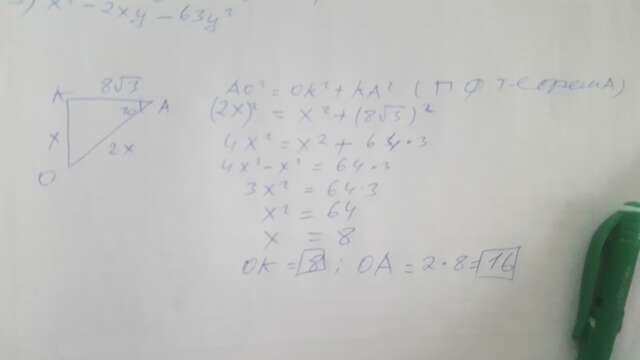 x² - 2xy - 63y²
8√3
K
A
30
x
2x
O
AO² = OK² + KA² (П Ф теорема)
(2x)² = x² + (8√3)²
4x² = x² + 64·3
4x² - x² = 64·3
3x² = 64·3
x² = 64
x = 8
OK = 8 ; OA = 2·8 = 16